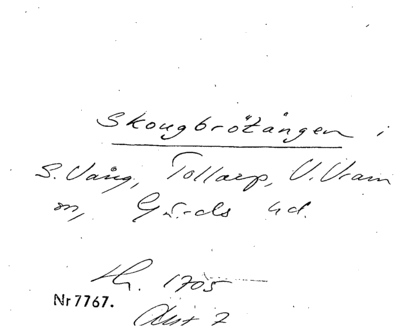 Skougbrötången i
S. Vång, Tollarp, V. Vram
sn, G-ds hd.
Lh. 1705
Nr 7767.
Akt 7